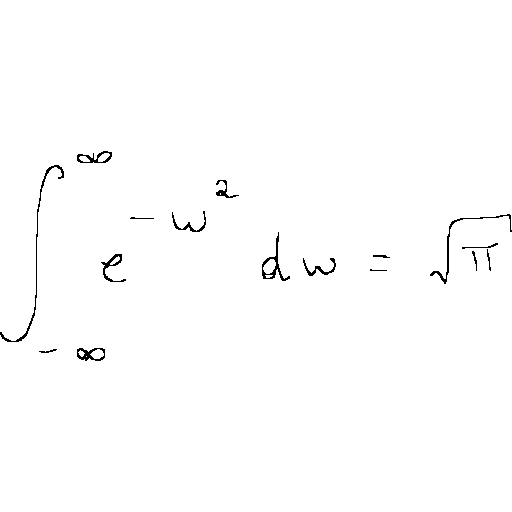 ∫_{-∞}^{∞} e^{-w^2} dw = √π